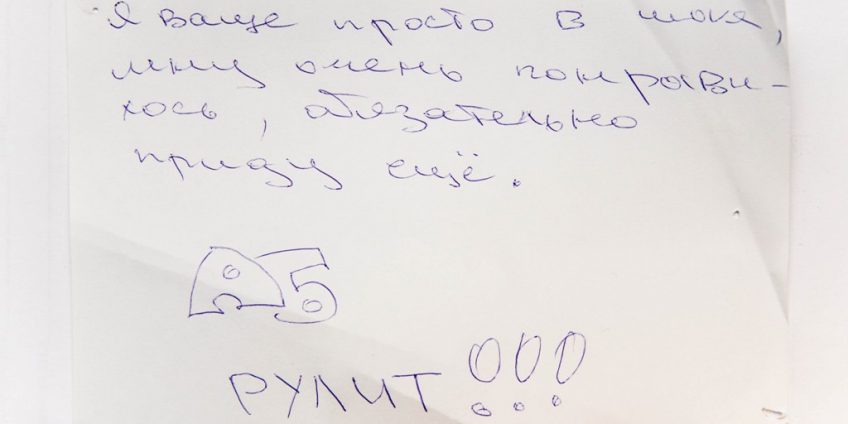 Я ваще просто в шоке,
мну очень понрави-
лось, обязательно
приду ещё.
Д5
РУЛИТ!!!